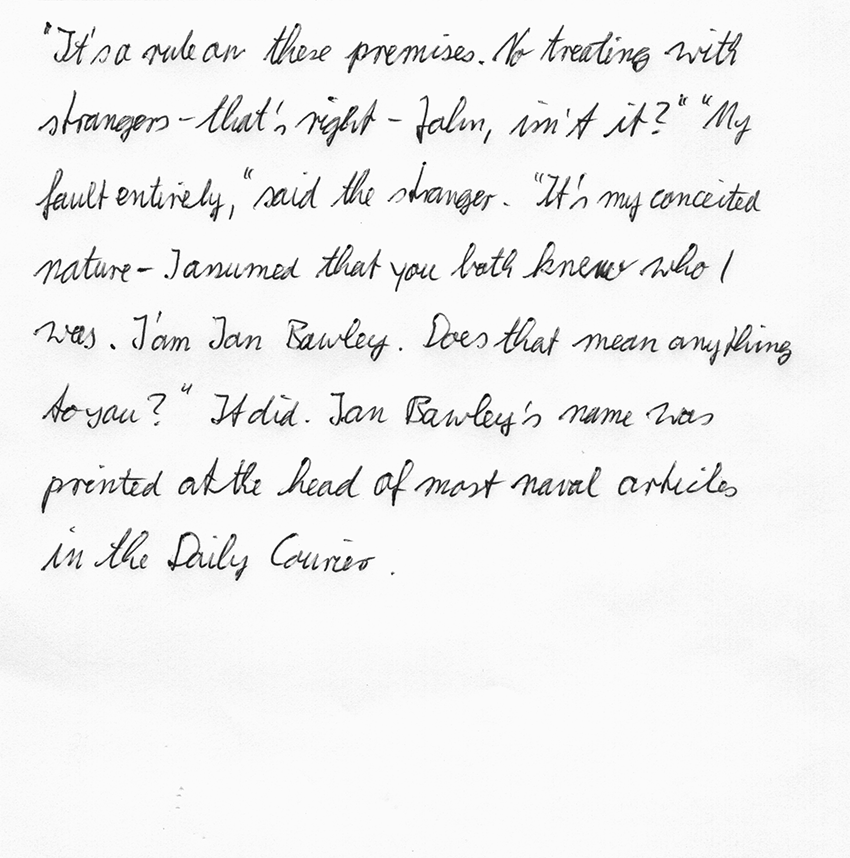 "It's a rule on these premises. No treating with
strangers - that's right - John, isn't it?" "My
fault entirely," said the stranger. "It's my conceited
nature - I assumed that you both knew who I
was. I'am Jan Bawley. Does that mean anything
to you?" It did. Jan Bawley's name was
printed at the head of most naval articles
in the Daily Courier.